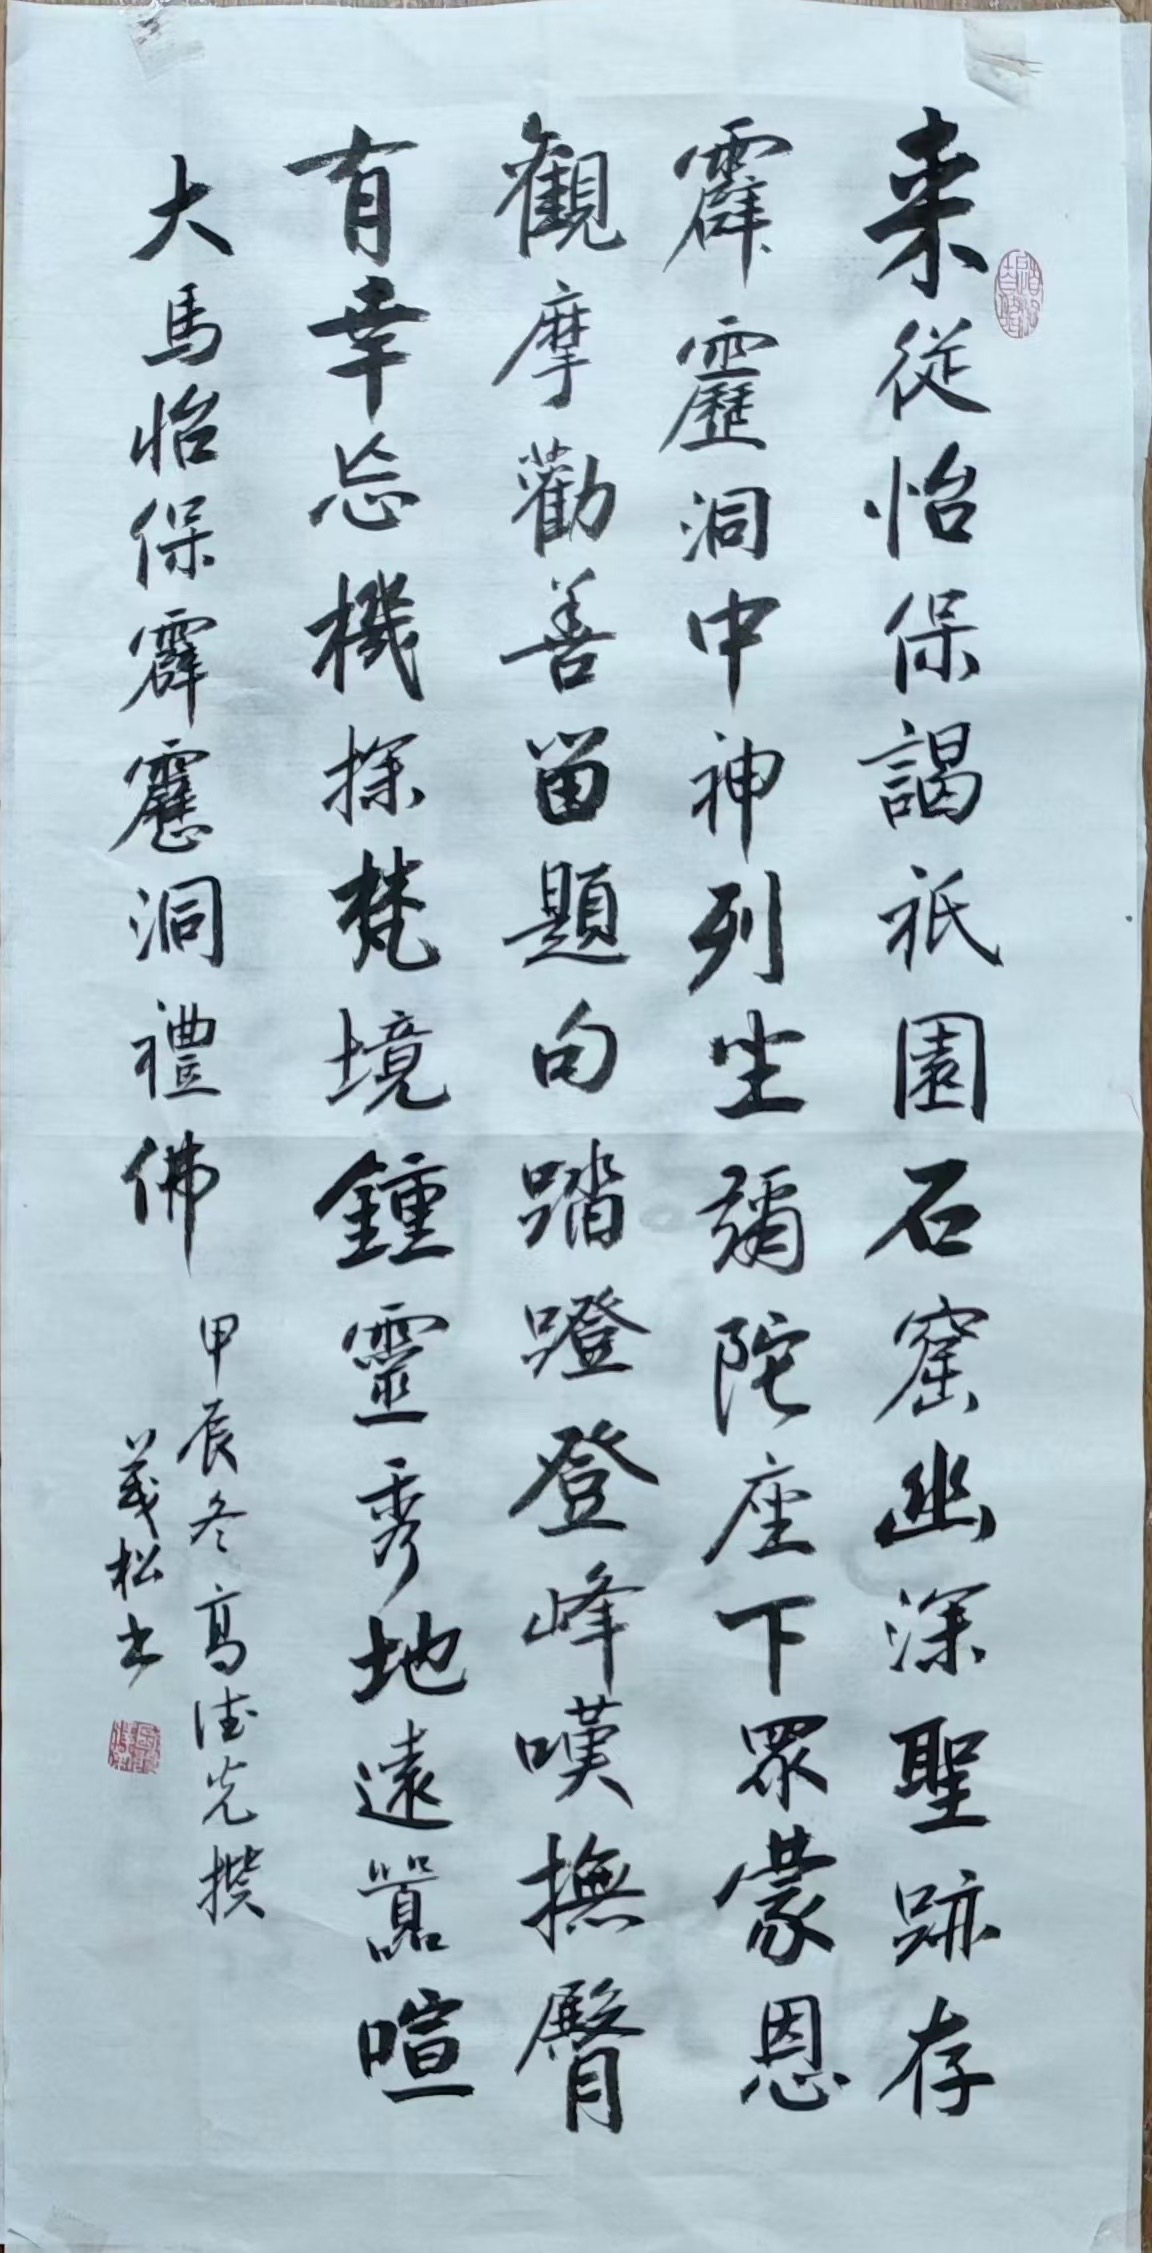 来從怡保謁祇園石窟幽深聖跡存
霹靂洞中神列坐彌陀座下眾蒙恩
觀摩勸善留題句踏蹬登峰嘆撫臀
有幸忘機探梵境鍾靈秀地遠囂喧
大馬怡保霹靂洞禮佛
甲辰冬高德光撰
義松书